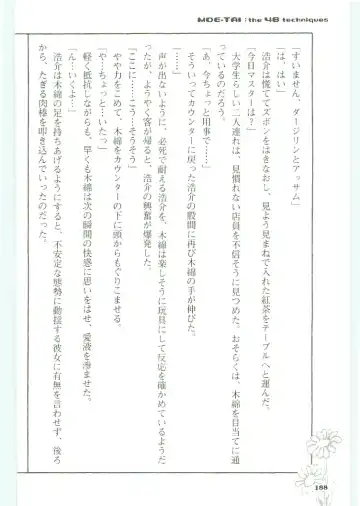 MOE-TAI : the 48 techniques
「すいません、ダージリンとアッサム」
「は、はい」
浩介は慌ててズボンをはきなおし、見よう見まねで入れた紅茶をテーブルへと運んだ。
「今日マスターは?」
大学生らしい二人連れは、見慣れない店員を不信そうに見つめた。おそらくは、木綿を目当てに通
っているのだろう。
「あ、今ちょっと用事で……」
そういってカウンターに戻った浩介の股間に再び木綿の手が伸びた。
声が出ないように、必死で耐える浩介を、木綿は楽しそうに玩具にして反応を確かめているようだ
ったが、ようやく客が帰ると、浩介の興奮が爆発した。
「ここに……こう……そうそう」
やや力をこめて、木綿をカウンターの下に頭からもぐりこませる。
「や…ちょっと…いたっ」
軽く抵抗しながらも、早くも木綿は次の瞬間の快感に思いをはせ、愛液を滲ませた。
「ん…いくよ…」
浩介は木綿の足を持ちあげるようにすると、不安定な態勢に動揺する彼女に有無を言わせず、後ろ
から、たぎる肉棒を叩き込んでいったのだった。
188